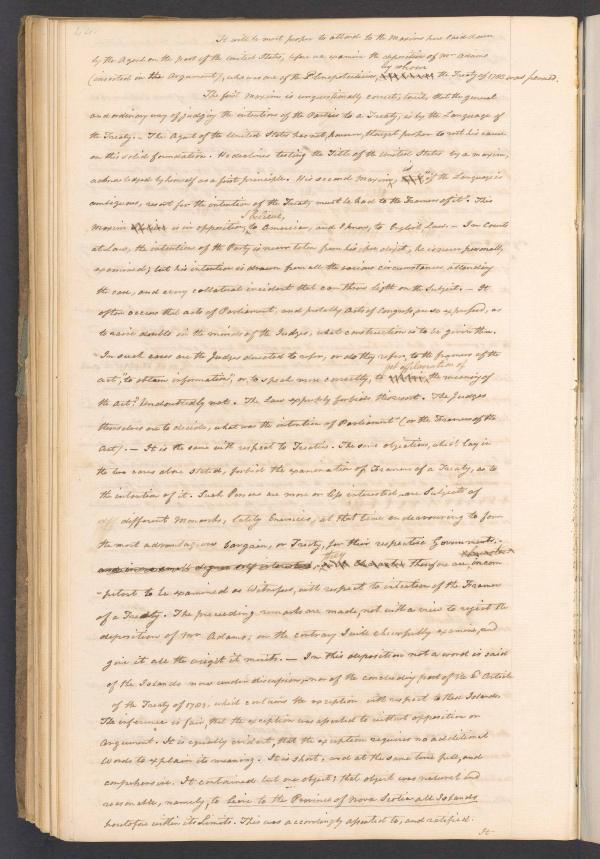 It will be most proper to attend to the Maxims here laid down
by the Agent on the part of the United States, before we examine the deposition of Mr Adams
by whom
(inserted in the Argument), who was one of the Plenipotentiaries, the Treaty of 1783 was formed.
The first Maxim is unquestionably correct, "that the general
and ordinary way of judging the intentions of the Parties to a Treaty, is by the Language of
the Treaty. — The Agent of the United States has not, however, thought proper to rest his cause
on this solid foundation. He declines testing the Title of the United States by a maxim,
acknowledged by himself as a first principle. His second Maxim, is "if the Language is
ambiguous, resort for the intention of the Treaty must be had to the Framers of it". This
I believe,
Maxim is in opposition, to American, and I know, to English Law. — In Courts
at Law, the intention of the Party is never taken from his, he is never personally
examined; but his intention is drawn from all the various circumstances, attending
the case, and every collateral incident that can throw light on the Subject. — It
often occurs that acts of Parliament, and probably Acts of Congress, are so expressed, as
to raise doubts in the minds of the Judges, what construction is to be given them.
In such cases are the Judges directed to refer, or do they refer, to the framers of the
Act, "to obtain information", or, to speak more correctly, to get a declaration of the meaning of
the Act? Undoubtedly not. The Law expressly forbids this resort. The Judges
themselves are to decide, what was the intention of Parliament (or the Framers of the
Act). — It is the same with respect to Treaties. The same objections, which lay in
the two cases above stated, forbid the examination of Framers of a Treaty, as to
the intention of it. Such Persons are more or less interested, are Subjects of
different Monarchs, lately Enemies, at that time endeavouring to form
the most advantageous bargain, or Treaty, for their respective Government.
and in no small degree self interested, they Therefore are incom
-petent to be examined as Witnesses, with respect to intention of the Framers
of a Treaty. The preceeding remarks are made, not with a view to reject the
deposition of Mr Adams; on the contrary I will chearfully examine, and
give it all the weight it merits. — In this deposition not a word is said
of the Islands now under discussion, nor of the concluding part of the 2d Article
of the Treaty of 1783, which contains the exception with respect to these Islands
The inference is fair, that the exception was assented to without opposition or
Argument. It is equally evident, that the exception requires no additional
words to explain its meaning. It is short, and at the same time full, and
comprehensive. It contained but one object; that object was natural and
reasonable, namely, to leave to the Province of Nova Scotia all Islands
heretofore within its Limits. This was accordingly assented to, and ratified.
It